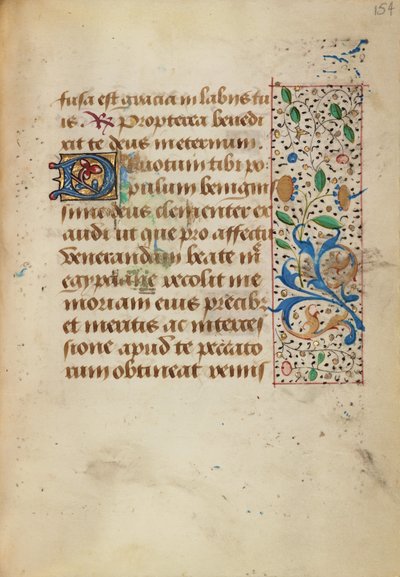 154
fusa est gracia in labiis tu
is. R Propterea benedi
xit te deus in eternum.
Devotum tibi po
pulum benignis
sime deus clementer ex
audi ut que pro affectu
venerandam beate m
egypciane recolit me
moriam eius precibz
et meritis ac interces
sione apud te peccato
rum obtineat venis